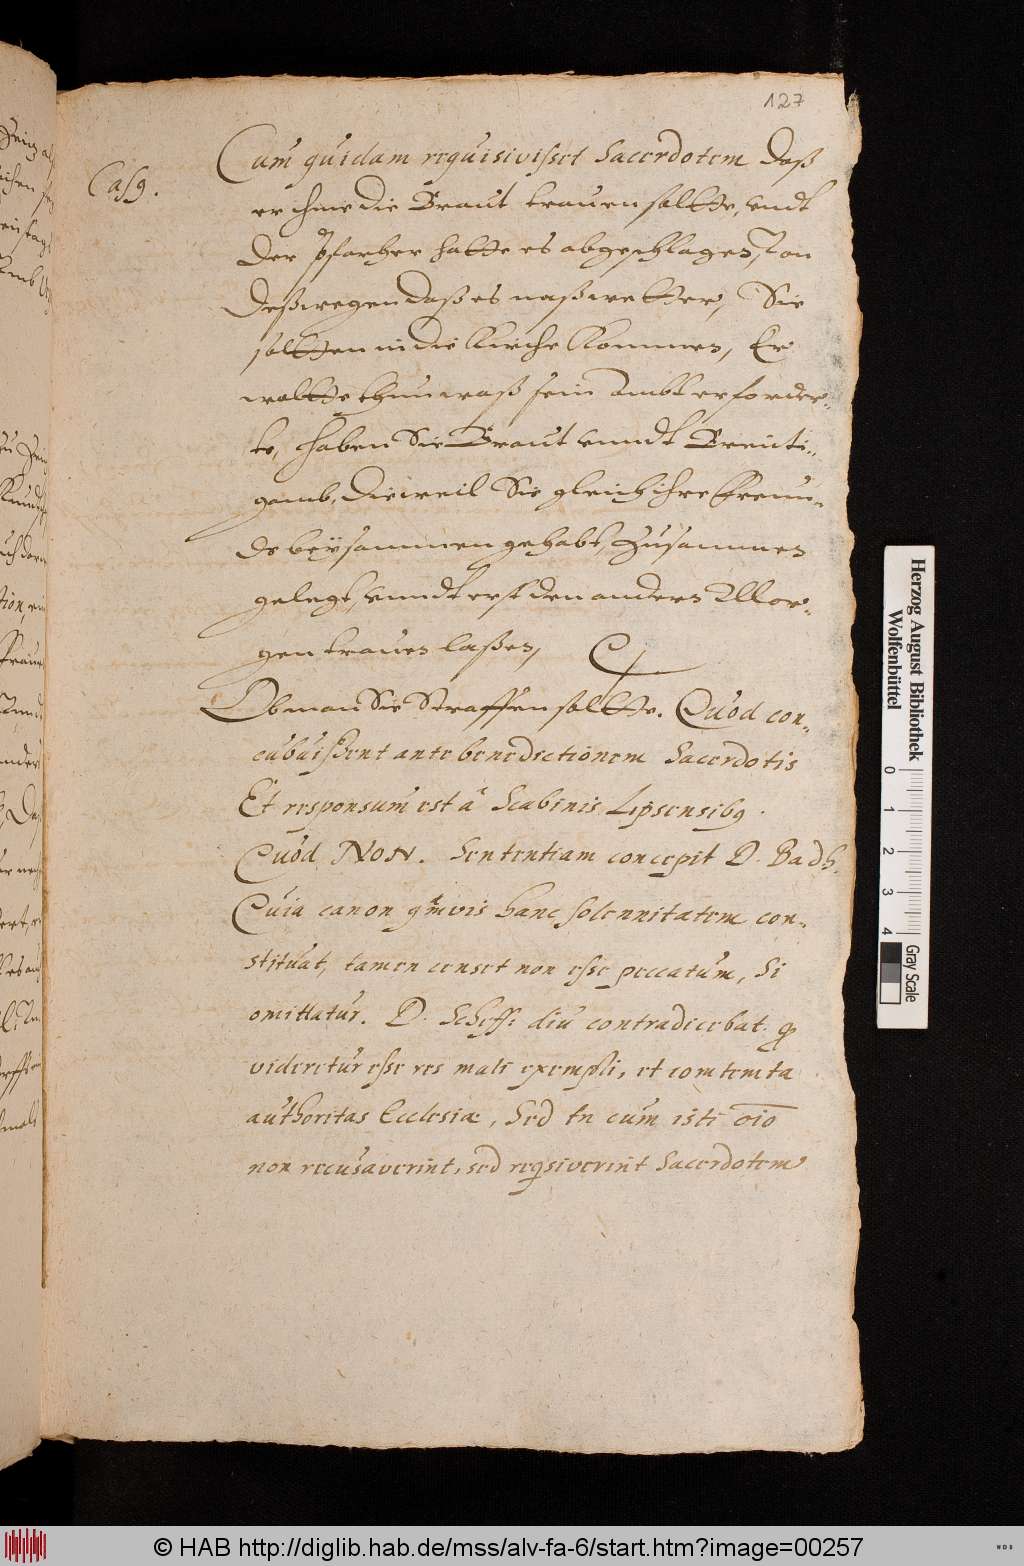 127
Casꝰ.
Cum quidam requisivisset Sacerdotem daß
er ihme die Braut trauen sollte, undt
der Pfarher hatte es abgeschlagen,
deßwegen daß es naß wetter, Sie
sollten in die Kirche kommen, Er
wollte thun waß sein ambt erforder⸗
te, haben Sie Braut unndt Breuti⸗
gamb, dieweil Sie gleich ihre Freun⸗
de beysammen gehabt, zusammen
gelegt, unndt erst den andern Mor⸗
gen trauen laßen,
Ob man Sie Straffen sollte. Quod con⸗
cubuissent ante benedictionem Sacerdotis
Et responsum est à Scabinis Lipsensibꝰ.
Quod NON. Sententiam concepit D. Badh.
Quia canon qmvis hanc solennitatem con⸗
stituat, tamen censet non esse peccatum, si
omittatur. D. Scheff: diu contradicebat.
videretur esse res mali exempli, et comtemta
authoritas Ecclesiæ, Sed tn cum isti oīo
non recusaverint, sed reqsiverint Sacerdotem
Herzog August Bibliothek
Wolfenbüttel
0 1 2 3 4
Gray Scale
© HAB http://diglib.hab.de/mss/alv-fa-6/start.htm?image=00257